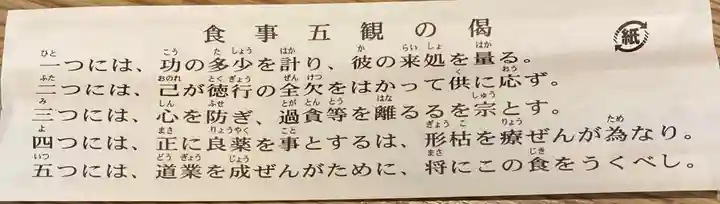 食事五観の偈
一つには、功の多少を計り、彼の来処を量る。
二つには、己が徳行の全欠をはかって供に応ず。
三つには、心を防ぎ、過貪等を離るるを宗とす。
四つには、正に良薬を事とするは、形枯を療ぜんが為なり。
五つには、道業を成ぜんがために、将にこの食をうくべし。
紙